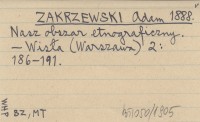 ZAKRZEWSKI Adam 1888.
Nasz obszar etnograficzny.
– Wisła (Warszawa) 2:
186-191.
WHP
BZ, MT
1050/1905